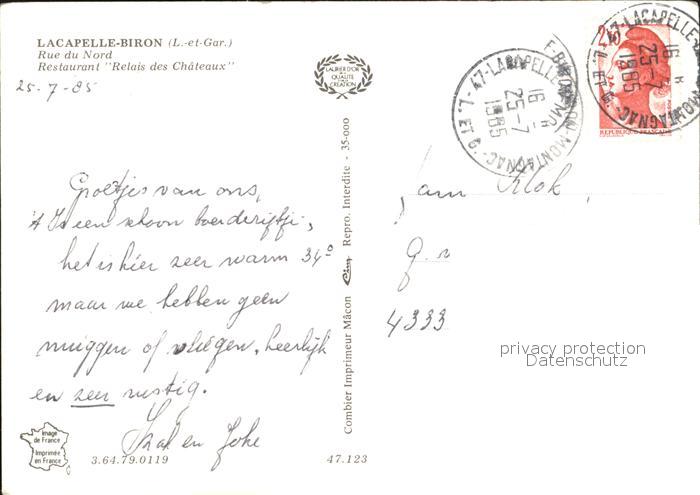 LACAPELLE-BIRON (L.-et-Gar.)
Rue du Nord
Restaurant "Relais des Châteaux"
25-7-85
LAURIER D'OR
DE LA
QUALITÉ
CRÉATION
Groetjes van ons,
't Is een schoon boerderijtje,
het is hier zeer warm 34°
maar we hebben geen
muggen of vliegen. heerlijk
en zeer rustig.
en Joke
Image
de France
Imprimée
en France
3.64.79.0119
47.123
Combier Imprimeur Mâcon Cim Repro. Interdite - 35-000
47-LACAPELLE-BIRON
16 H
25-7
1985
L. ET G.
2,10
REPUBLIQUE FRANCAISE
47-LACAPELLE
16 H
25-7
1985
MONTAGNAC
fam Klok,
4333
privacy protection
Datenschutz